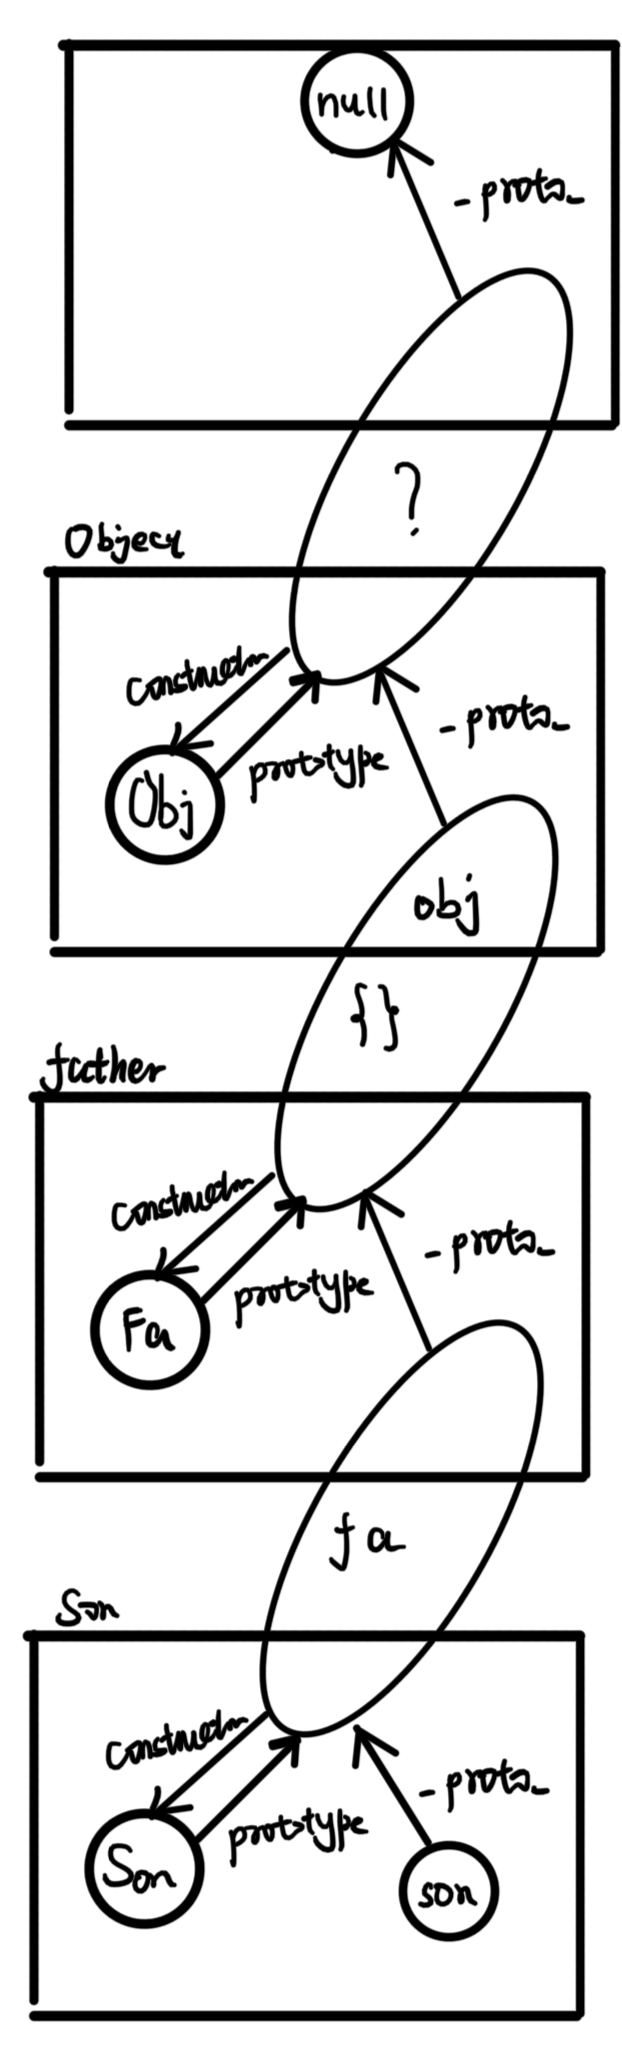 null
_ proto_
?
Object
constructor
prototype
_ proto_
Obj
obj
{}
father
constructor
prototype
_ proto_
Fa
fa
Son
constructor
prototype
_ proto_
Son
son